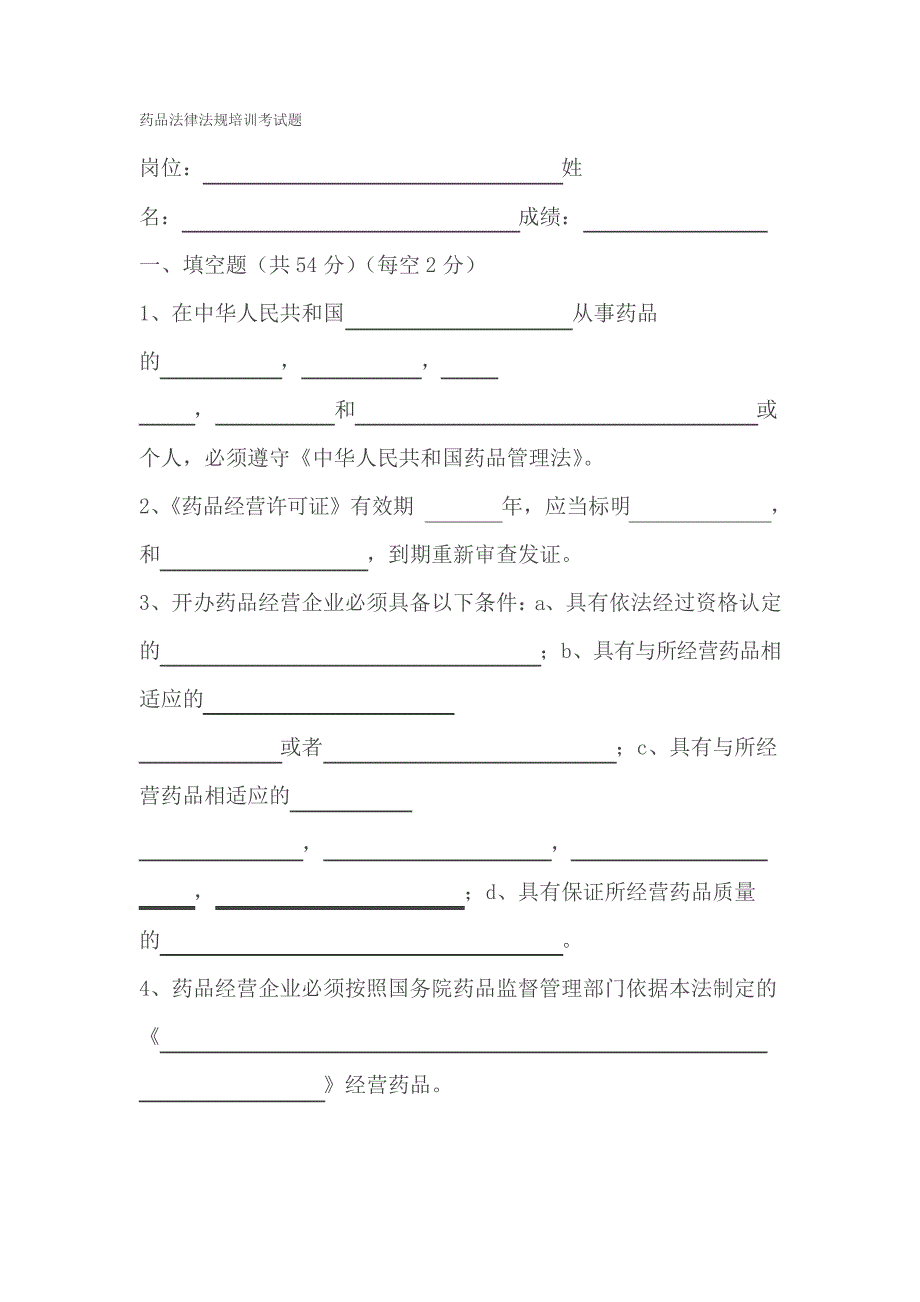 药品法律法规培训考试题
岗位：__________姓
名：__________成绩：__________
一、填空题（共54分）（每空2分）
1、在中华人民共和国__________从事药品
的__________，__________，_____
_____，__________和__________或
个人，必须遵守《中华人民共和国药品管理法》。
2、《药品经营许可证》有效期 _______年，应当标明_____________，
和__________，到期重新审查发证。
3、开办药品经营企业必须具备以下条件：a、具有依法经过资格认定
的__________；b、具有与所经营药品相
适应的__________
__________或者__________；c、具有与所经
营药品相适应的__________
__________，__________，__________
_____，__________；d、具有保证所经营药品质量
的__________。
4、药品经营企业必须按照国务院药品监督管理部门依据本法制定的
《__________
__________》经营药品。